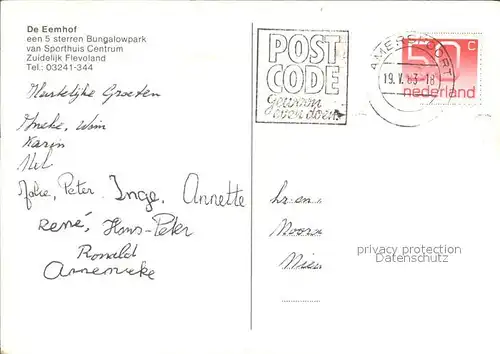 De Eemhof
een 5 sterren Bungalowpark
van Sporthuis Centrum
Zuidelijk Flevoland
Tel.: 03241-344
Hartelijke Groeten
Aneke, Wim
Karin
Nel
Jolie, Peter. Inge, Annette
René, Hans-Peter
Ronald
Annemieke
POST
CODE
Gewoon
even doen.
AMERSFOORT
19.V.83-18
50 C
nederland
privacy protection
Datenschutz